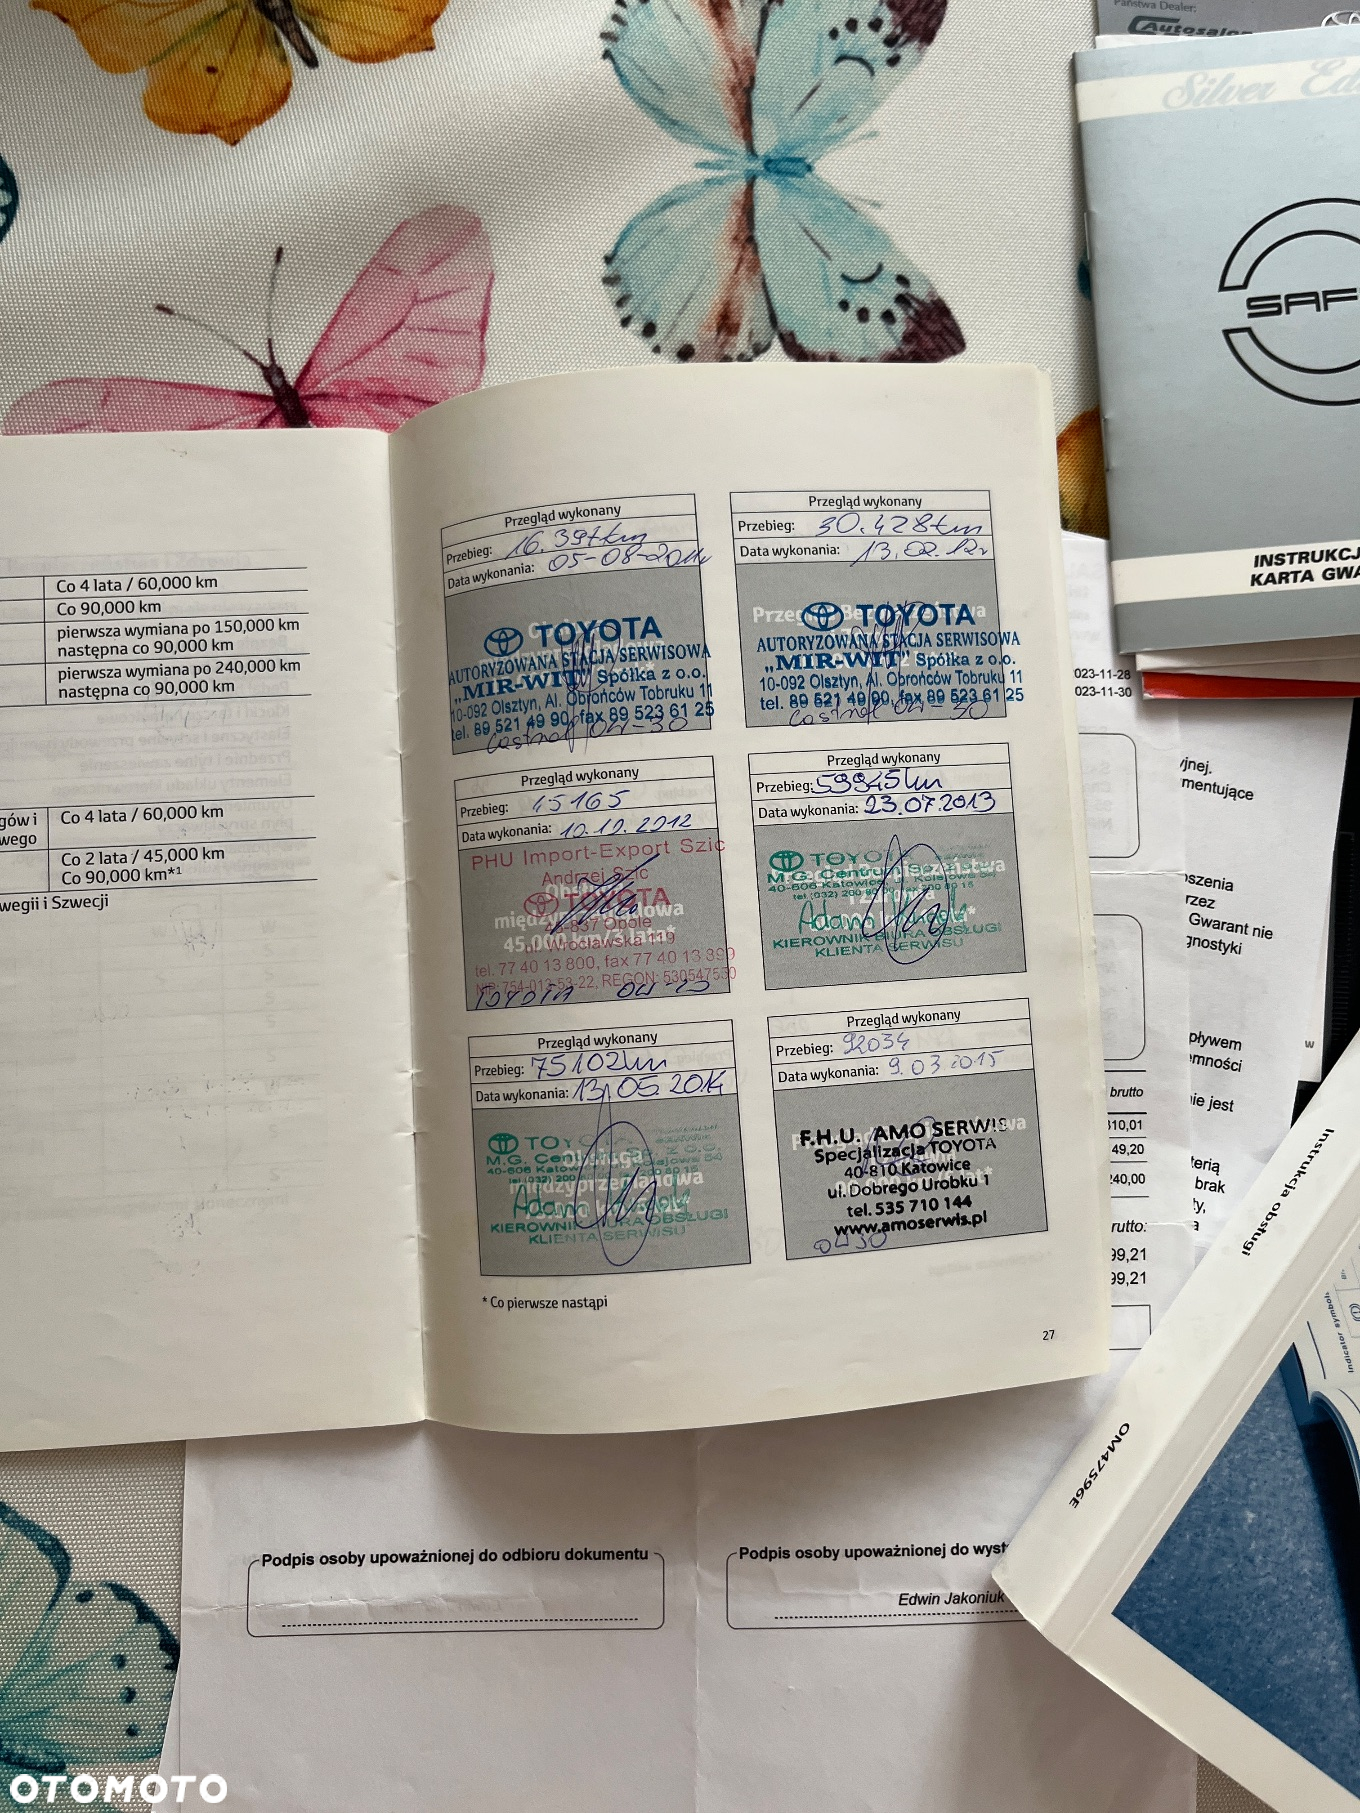 Państwa Dealer:
Autosalon
Silver
SAF
INSTRUKCJ
KARTA GWA
023-11-28
023-11-30
Co 4 lata / 60,000 km
Co 90,000 km
pierwsza wymiana po 150,000 km
następna co 90,000 km
pierwsza wymiana po 240,000 km
następna co 90,000 km
gów i
wego
Co 4 lata / 60,000 km
Co 2 lata / 45,000 km
Co 90,000 km*¹
wegii i Szwecji
Przegląd wykonany
Przebieg: 16.397km
Data wykonania: 05-08-2011r
TOYOTA
AUTORYZOWANA STACJA SERWISOWA
„MIR-WIT" Spółka z o.o.
10-092 Olsztyn, Al. Obrońców Tobruku 11
tel. 89 521 49 90, fax 89 523 61 25
Castrol 0W-30
Przegląd wykonany
Przebieg: 30.428km
Data wykonania: 13.02.12r
TOYOTA
AUTORYZOWANA STACJA SERWISOWA
„MIR-WIT" Spółka z o.o.
10-092 Olsztyn, Al. Obrońców Tobruku 11
tel. 89 521 49 90, fax 89 523 61 25
Castrol 0W-30
Przegląd wykonany
Przebieg: 45165
Data wykonania: 10.12.2012
PHU Import-Export Szic
Andrzej Szic
TOYOTA
45-837 Opole
Wrocławska 119
międzyprzeglądowa
45.000 km/3 lata*
tel. 77 40 13 800, fax 77 40 13 899
NIP: 754-013-53-22, REGON: 530547550
TOYOTA
Przegląd wykonany
Przebieg: 59945km
Data wykonania: 23.07.2013
TOYOTA
M.G. Centrum
40-606 Katowice, Kolejowa 54
Adam
KIEROWNIK BIURA OBSŁUGI
KLIENTA SERWISU
Przegląd wykonany
Przebieg: 75102km
Data wykonania: 13.05.2014
TOYOTA
M.G. Centrum
Obsługa
międzyprzeglądowa
Adam
KIEROWNIK BIURA OBSŁUGI
KLIENTA SERWISU
Przegląd wykonany
Przebieg: 92034
Data wykonania: 9.03.2015
F.H.U. AMO SERWIS
Specjalizacja TOYOTA
40-810 Katowice
ul. Dobrego Urobku 1
tel. 535 710 144
www.amoserwis.pl
0W30
* Co pierwsze nastąpi
27
yjnej.
mentujące
oszenia
rzez
Gwarant nie
gnostyki
pływem
emności
ie jest
terią
brak
brutto
310,01
49,20
240,00
rutto:
99,21
99,21
Instrukcja obsługi
Indicator symbols
OM47596E
Podpis osoby upoważnionej do odbioru dokumentu
Podpis osoby upoważnionej do wyst
Edwin Jakoniuk
OTOMOTO